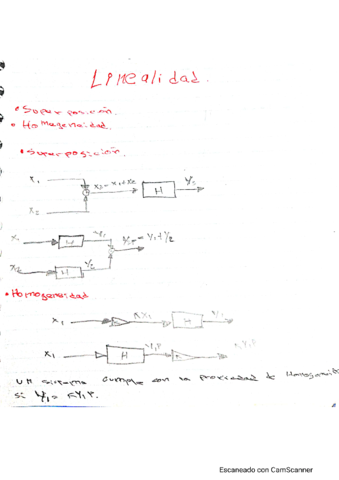 Linealidad.
• Superposición.
• Homogeneidad.
• Superposición.
X₁
X₃ = X₁ + X₂
H
Y₃
X₂
X₁
H
Y₁
Y₃ = Y₁ + Y₂
X₂
H
Y₂
• Homogeneidad
X₁
KX₁
H
Y₁
X₁
H
Y₁P
K
KY₁P
Un sistema cumple con la propiedad de Homogeneidad
si Y₁ = KY₁P.
Escaneado con CamScanner